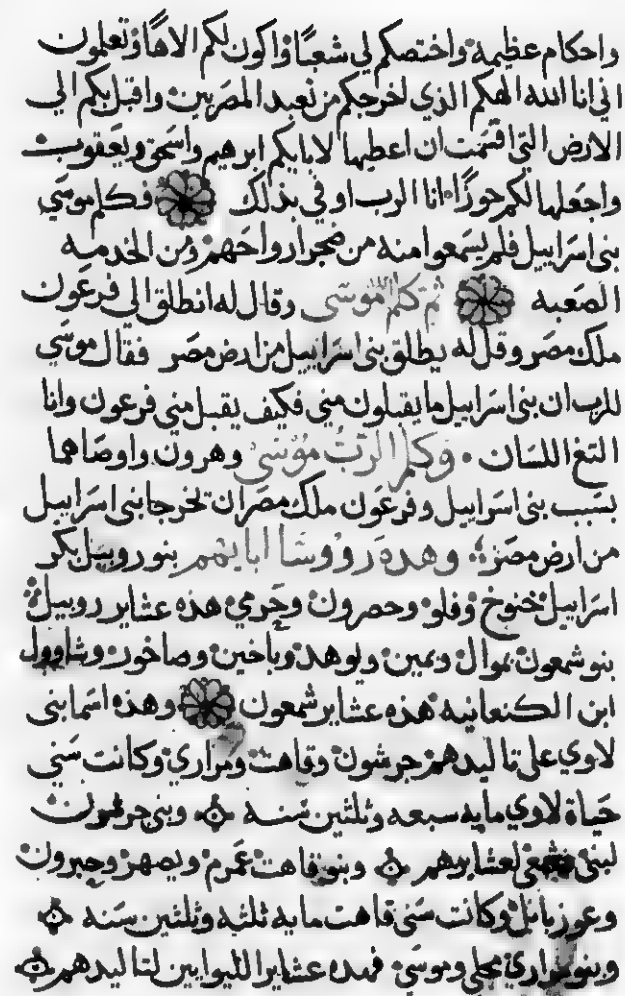 واحكام عظيمة واختصكم لي شعبًا واكون لكم الاهًا وتعلمون
اني انا الله الهكم الذي اخرجكم من تعبد المصريين واقبل بكم الي
الارض التي اقسمت ان اعطيها لابايكم ابرهيم واسحق ويعقوب
واجعلها لكم حوزًا انا الرب اوفي بذلك فكلم موسي
بني اسراييل فلم يسمعوا منه من ضجر ارواحهم ومن الخدمه
الصعبه ثم كلم الله موسي وقال له انطلق الي فرعون
ملك مصر وقل له يطلق بني اسراييل من ارض مصر فقال موسي
للرب ان بني اسراييل ما يقبلون مني فكيف يقبل مني فرعون وانا
التغ اللسان وكلم الرب موسي وهرون واوصاهما
بسبب بني اسراييل وفرعون ملك مصر ان تخرجا بني اسراييل
من ارض مصر وهده رووسا ابايهم بنو روبيل بكر
اسراييل خنوخ وفلو وحصرون وجرمي هذه عشاير روبيل
بنو شمعون يموال ويمين ولوهد وياخين وصاخور وشاوول
ابن الكنعانيه هذه عشاير شمعون وهذه اسما بني
لاوي علي تاليدهم جرشون وقاهت ومراري وكانت سني
حياة لاوي مايه سبعه وثلثين سنه وبني جرشون
لبني لعشايرهم وبنو قاهت عمرم ويصهر وحبرون
وعوزيائل وكانت سني قاهت مايه ثلثه وثلثين سنه
وبنو مراري محلي وموسي فهده عشاير الليوايين لتاليدهم